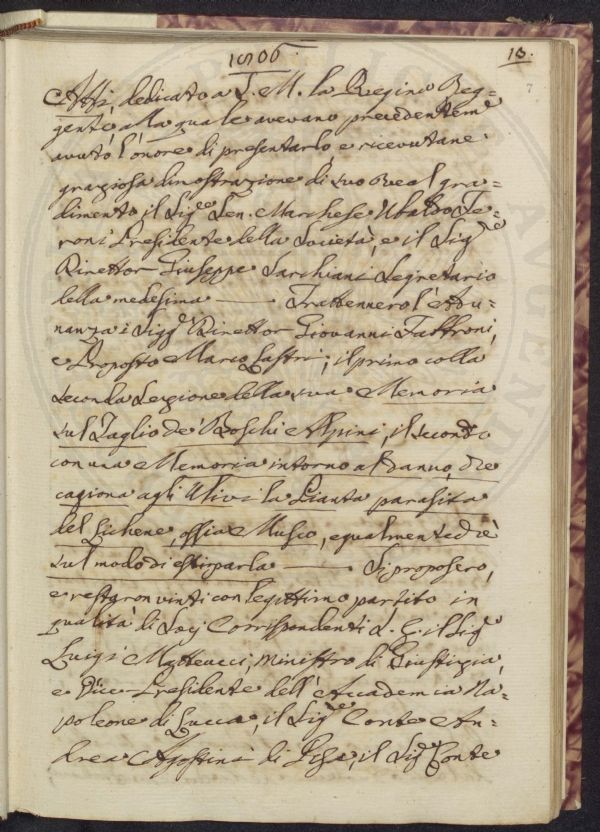 1806.
13.
7
Atti, dedicato a S. M. la Regina Reg=
gente, alla quale avevano precedentem.e
avuto l'onore di presentarlo e ricevutane
graziosa dimostrazione di suo Real gra=
dimento il Sig.e Sen. Marchese Ubaldo Fe=
roni Presidente della Società, e il Sig.e
Direttor Giuseppe Sarchiani Segretario
della medesima —— Trattennero l'Adu=
nanza i Sigg.i Direttor Giovanni Fabbroni,
e Proposto Marco Lastri; il primo colla
seconda Lezione della sua Memoria
sul Taglio de' Boschi Alpini, il secondo
con una Memoria intorno al danno, che
cagiona agli Ulivi la Pianta parasita
del Lichene, ossia Musco, equalmente che
sul modo di estirparla —— Si proposero,
e restaron vinti con legittimo partito in
qualità di Socj Corrispondenti il Sig.e
Luigi Matteucci, Ministro di Giustizia,
e Vice-Presidente dell'Accademia Na=
poleone di Lucca, il Sig.e Conte An=
drea Agostini di Pisa, il Sig.e Conte